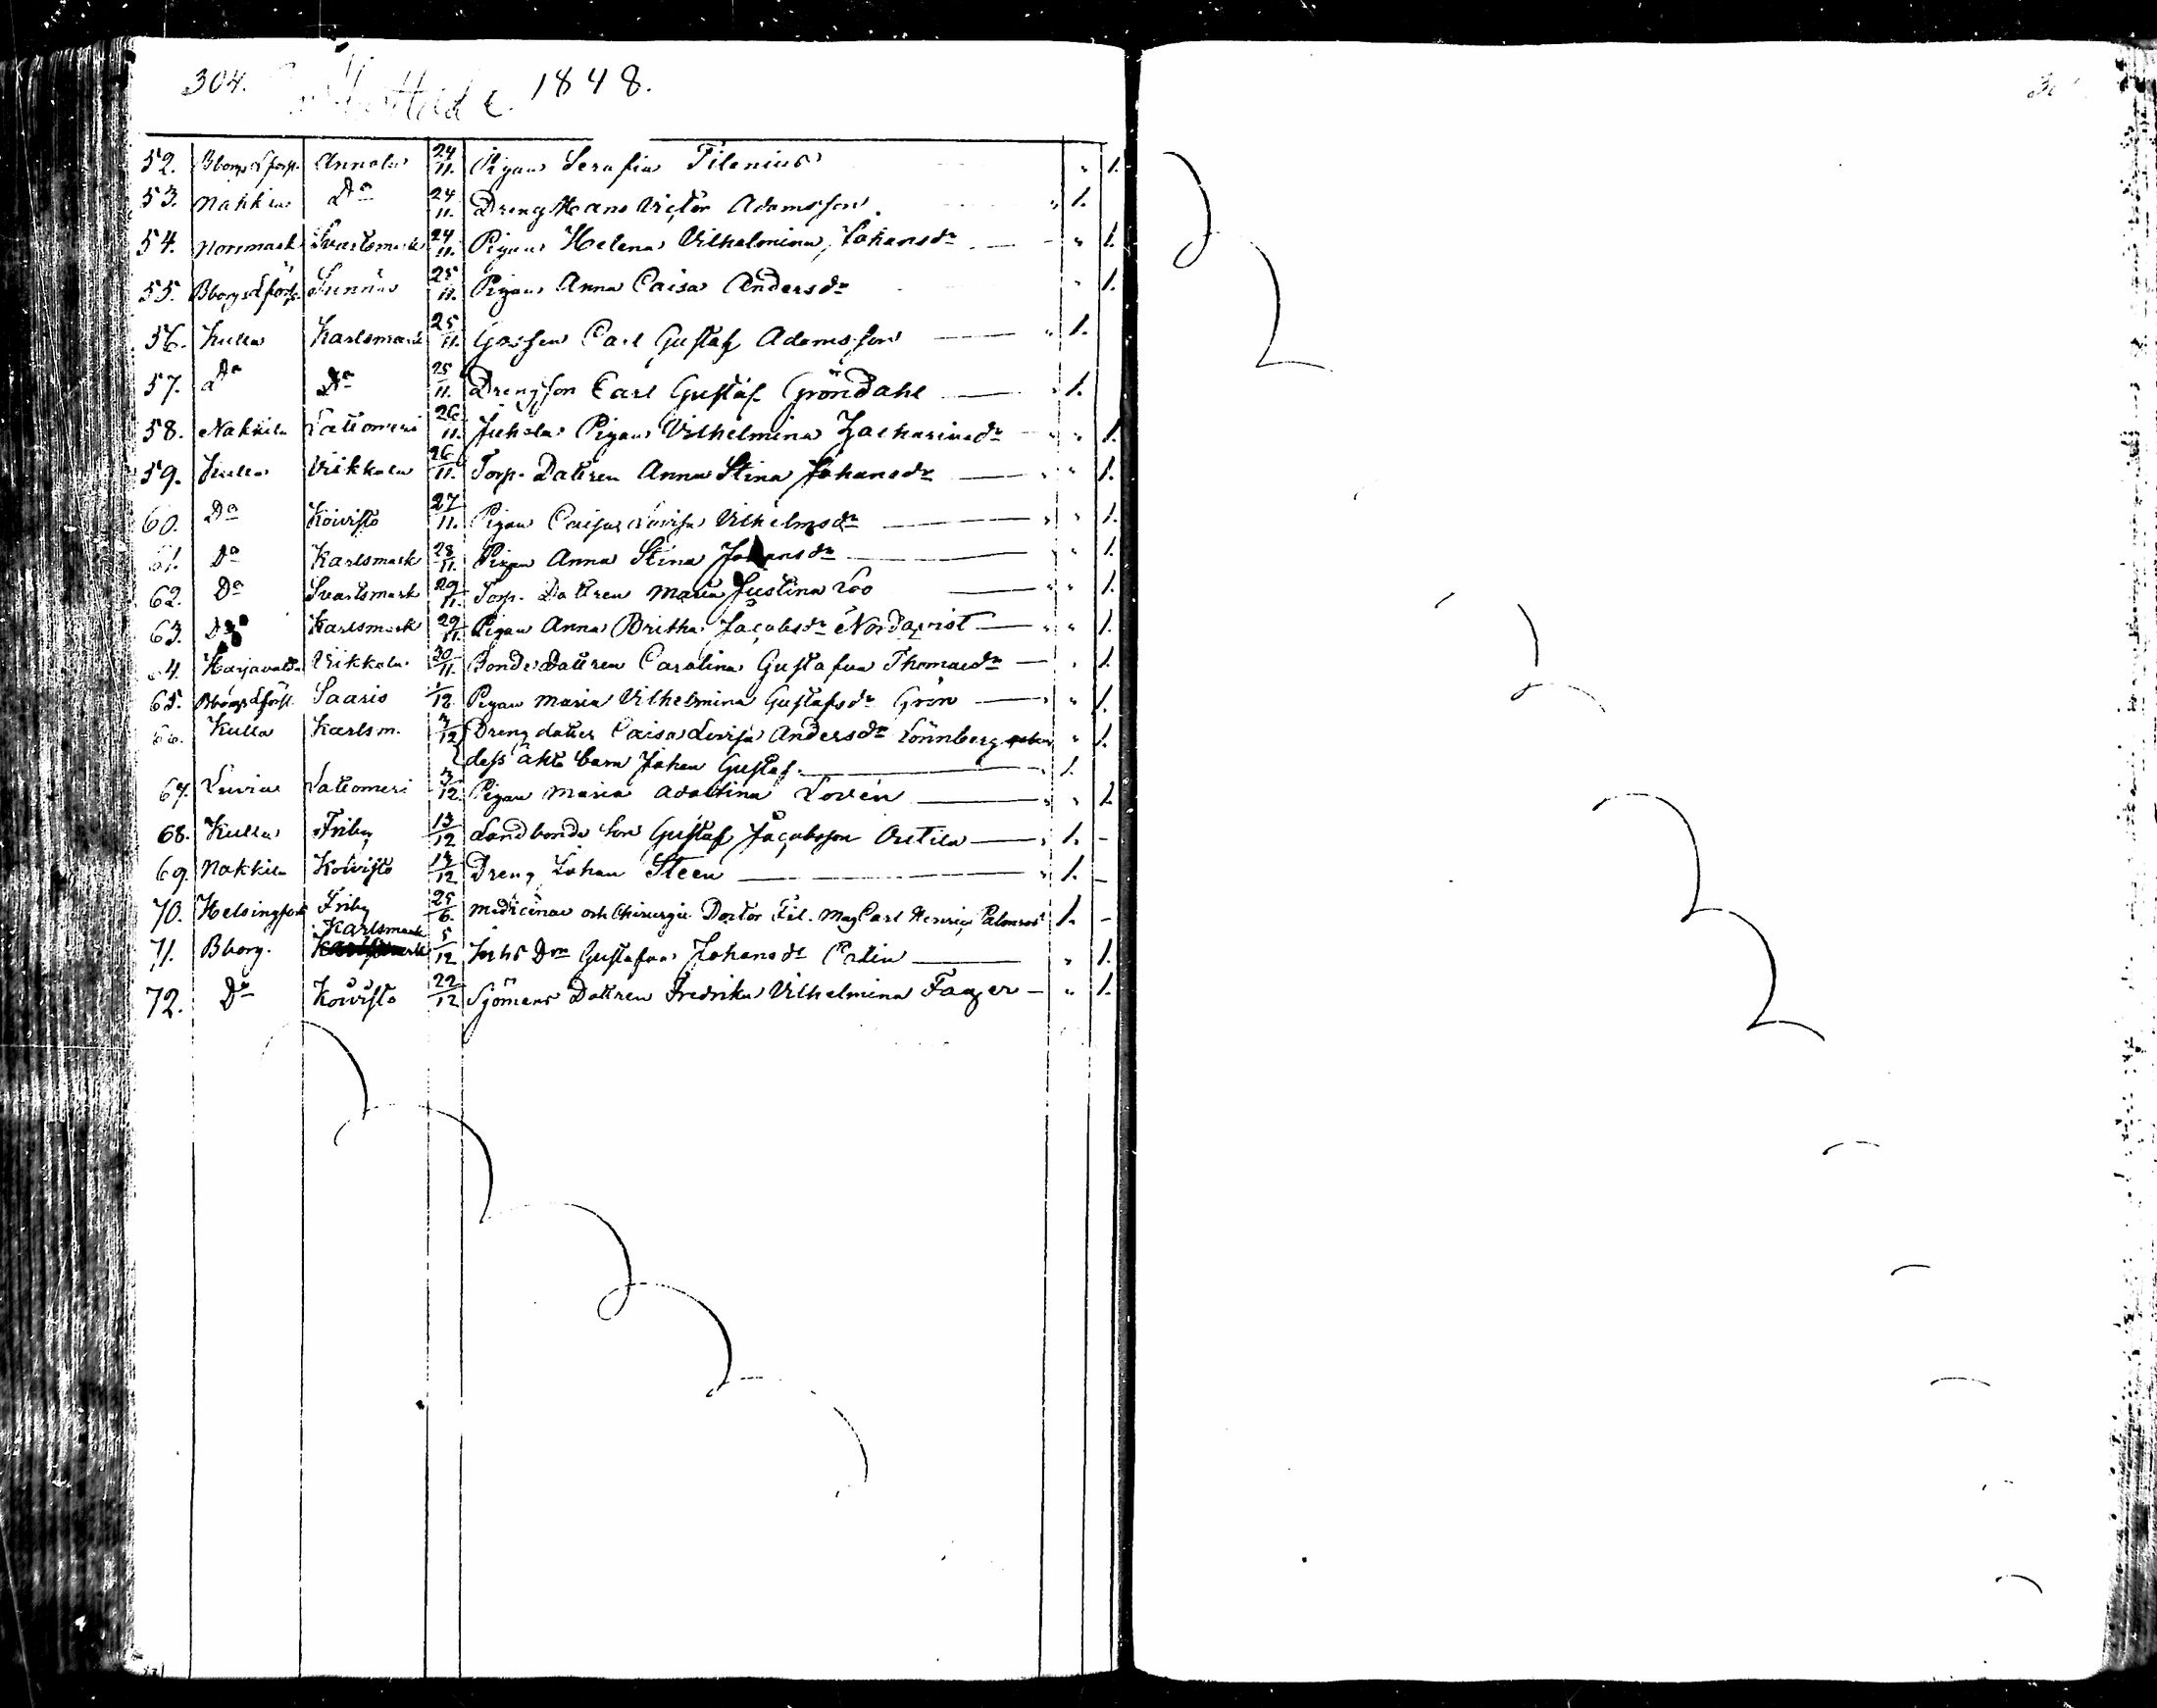 304. Inflyttade. 1848.
52. Bborgs Lförs. Annala 24/11. Pigan Serafia Filenius " 1.
53. Nakkila Do 24/11. Dreng Hans Victor Adamsson. " 1.
54. Norrmark Svartsmark 24/11. Pigan Helena Vilhelmina Johansdr " 1.
55. Bborgs Lförs. Sunnäs 25/11. Pigan Anna Caisa Andersdr " 1.
56. Kulla Karlsmark 25/11. Gossen Carl Gustaf Adamsson " 1.
57. Do Do 25/11. Drengson Carl Gustaf Gröndahl " 1.
58. Nakkila Lattomeri 26/11. Pigan Vilhelmina Zachariaedr " " 1.
59. Kulla Vikkala 26/11. Torp. Dottren Anna Stina Johansdr " " 1.
60. Do Koivisto 27/11. Pigan Caisa Lovisa Vilhelmsdr " " 1.
61. Do Karlsmark 28/11. Pigan Anna Stina Johansdr " 1.
62. Do Svartsmark 29/11. Torp. Dottren Maria Justina Roo " " 1.
63. Do Karlsmark 29/11. Pigan Anna Britha Jacobsdr Nordqvist " " 1.
64. Harjavalda Vikkala 30/11. Bonde Dottren Carolina Gustafva Thomasdr " 1.
65. Bborgs Lförs. Saaris 1/12. Pigan Maria Vilhelmina Gustafsdr Grön " " 1.
66. Kulla Karlsm. /12 Dreng dotter Caisa Lovisa Andersdr Lönnberg " 1.
dess äkta barn Johan Gustaf. " 1.
67. Luvia Lattomeri /12. Pigan Maria Adolfina Lovén " " 1.
68. Kulla Friby 13/12 Landbonde Son Gustaf Jacobsson " 1. -
69. Nakkila Koivisto /12 Dreng Johan Steen " 1. -
70. Helsingfors Friby 25/6. Medicinae och Chirurgie Doctor Fil. Mag Carl Henric 1. -
71. Bborg. Karlsmark 5/12 Gustafva Johansdr " 1.
72. Do Koivisto 22/12 Sjömans Dottren Fredrika Vilhelmina Fager " 1.